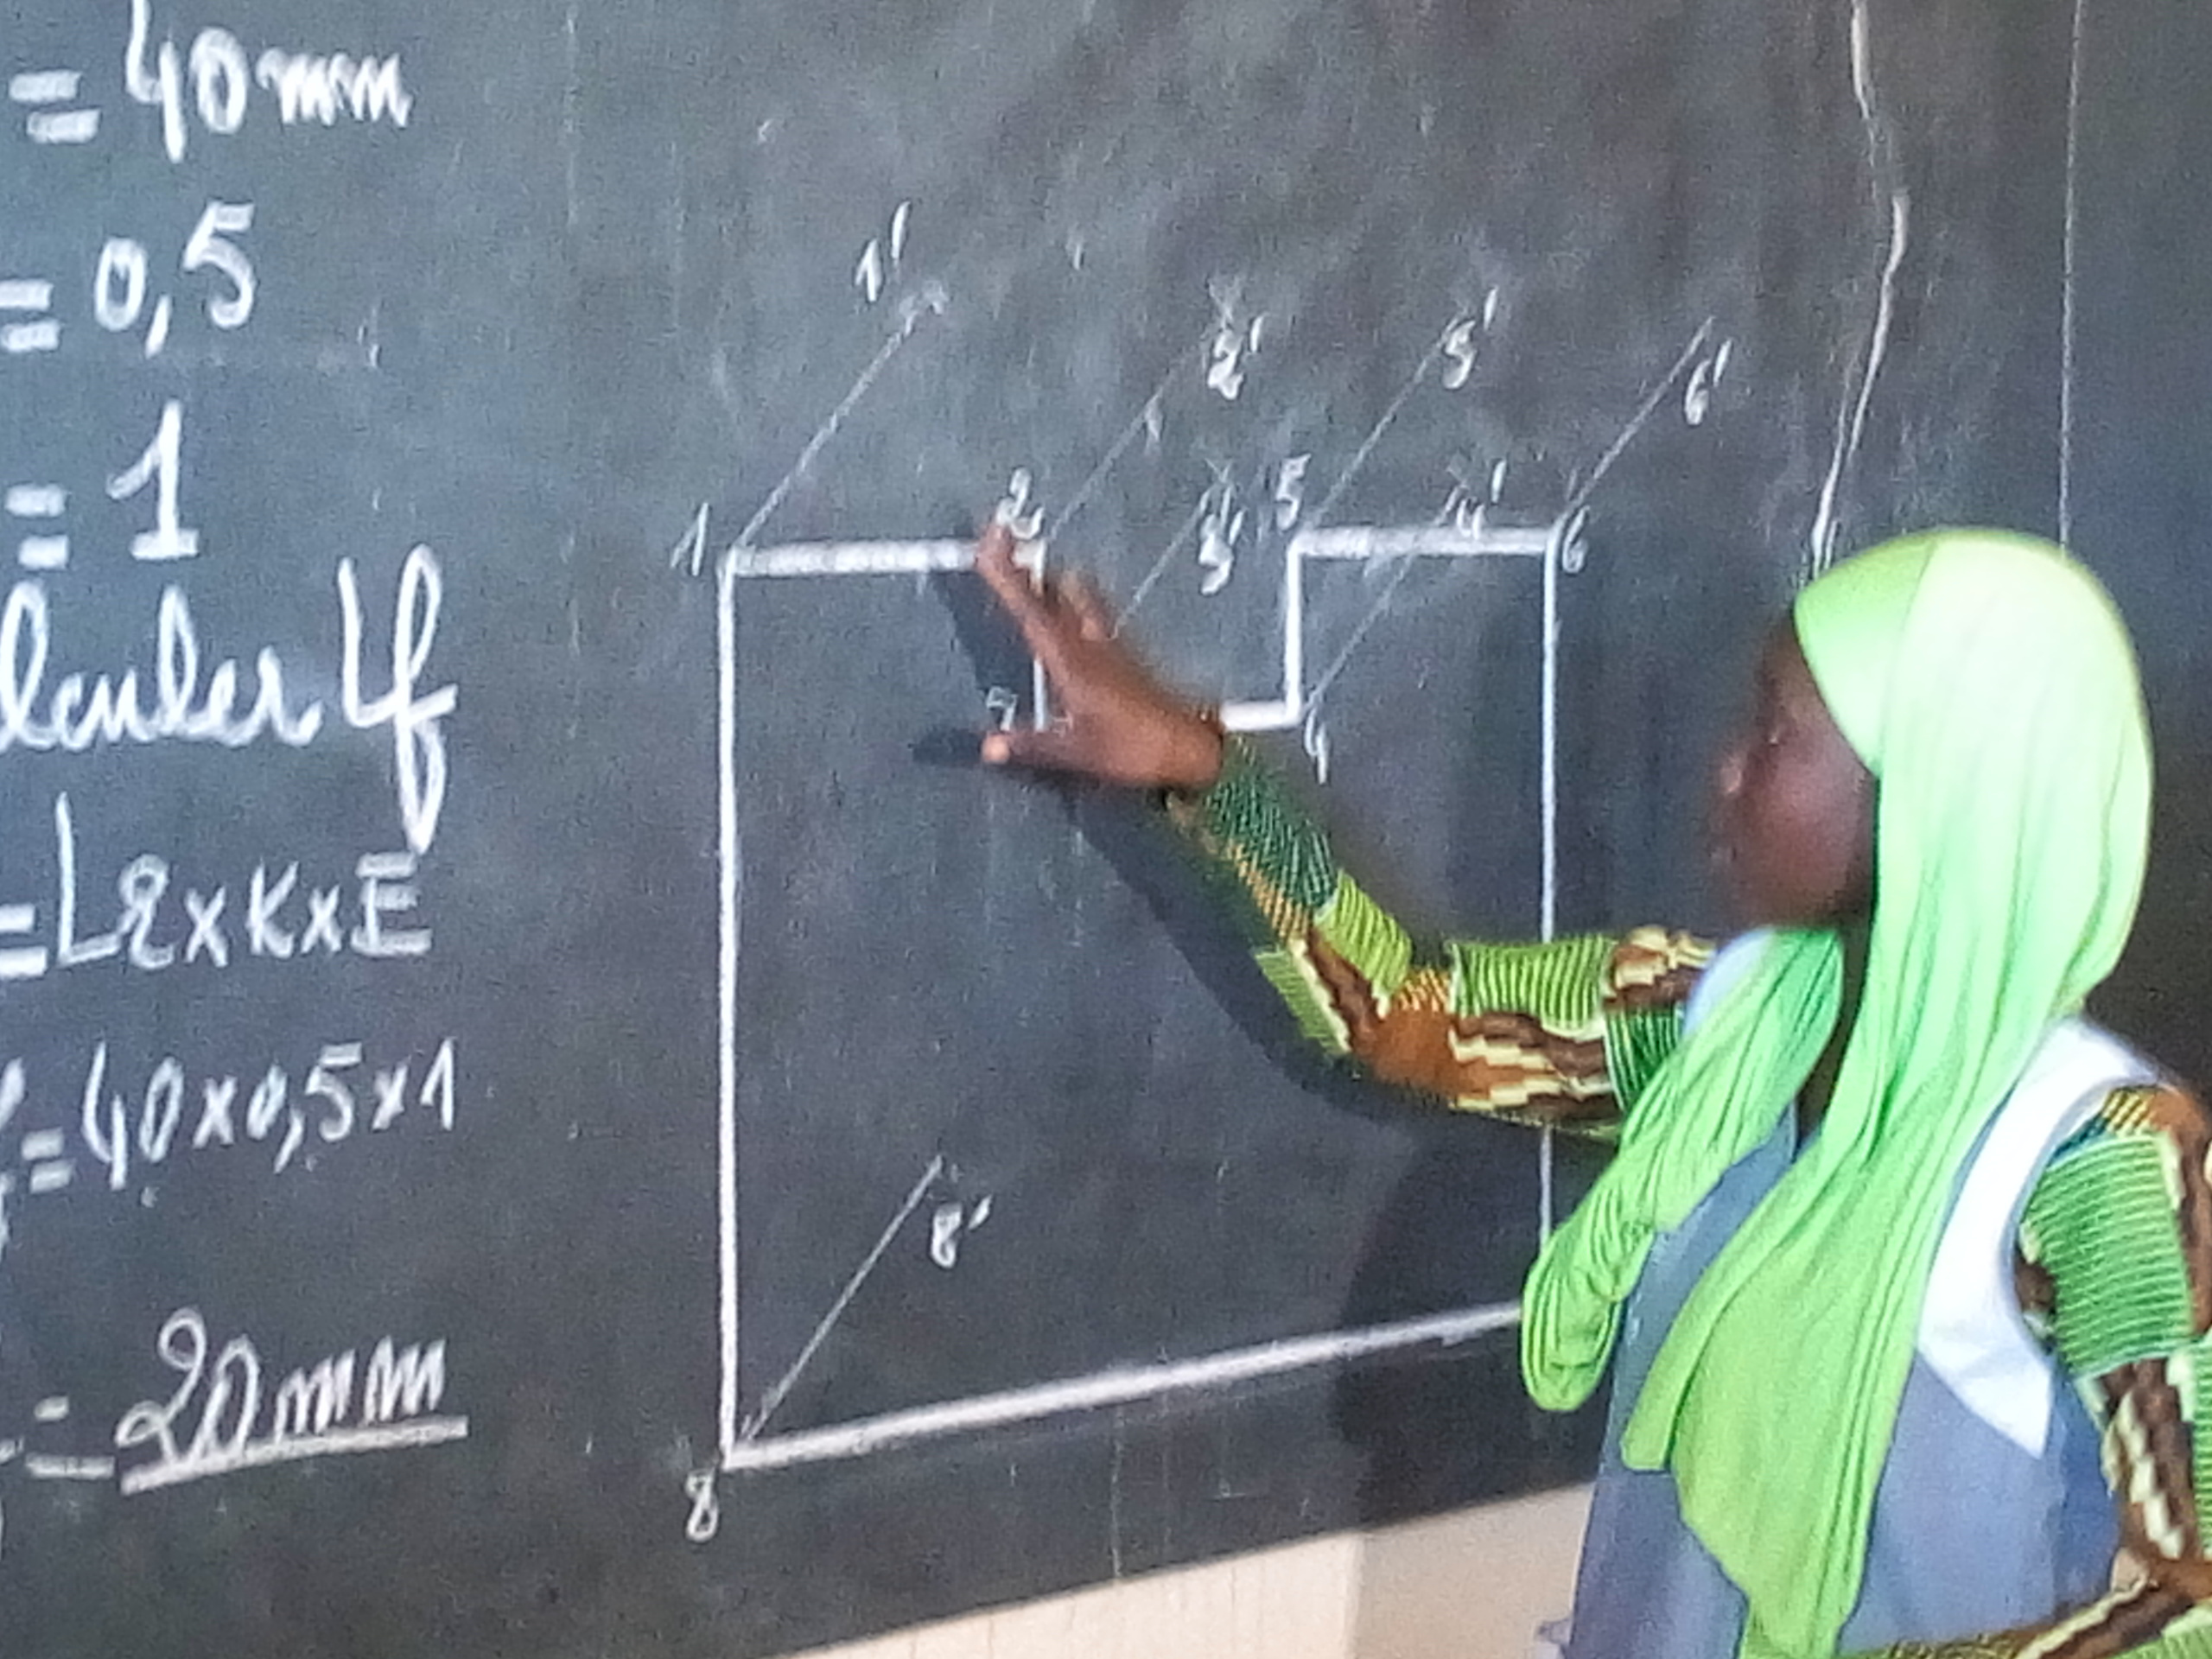 = 40mm
= 0,5
= 1
lculer Lf
= LrxKxE
= 40x0,5x1
= 20mm
1'
2'
5'
6'
1
2
3'
5
4'
6
4
8'
8